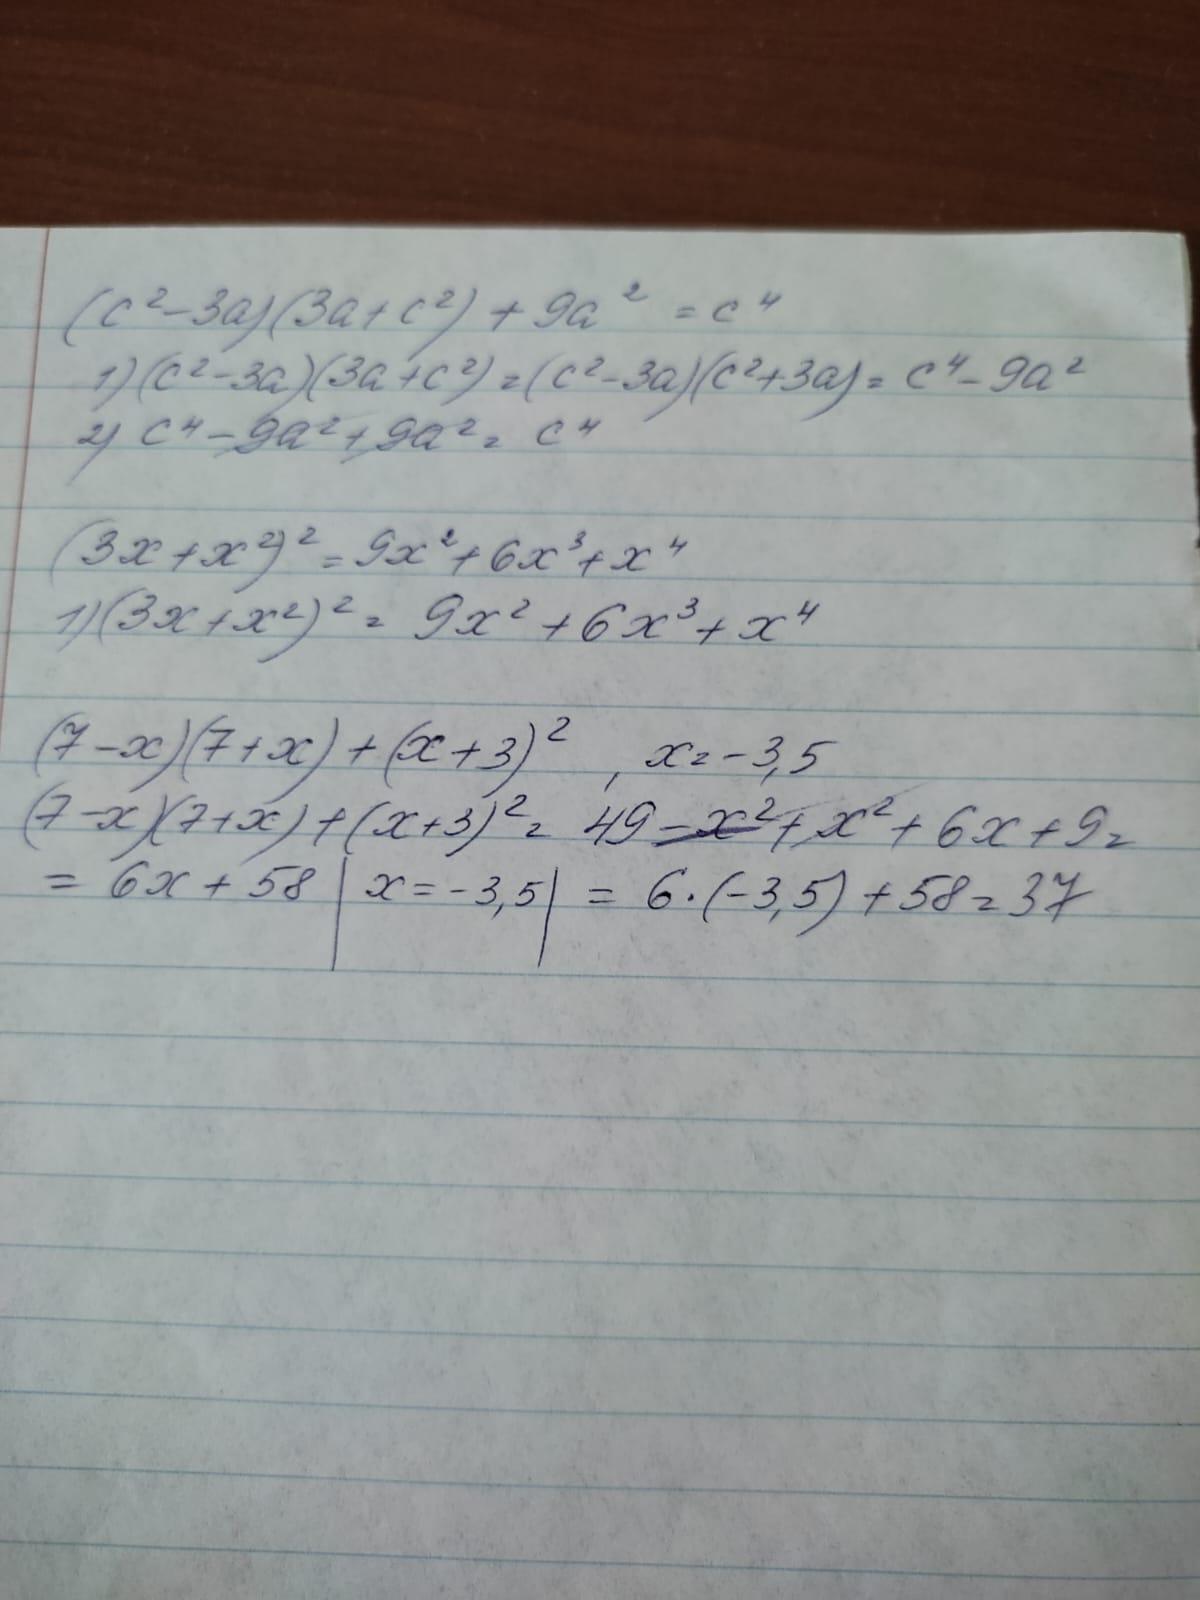 (c²-3a)(3a+c²) + 9a² = c⁴
1) (c²-3a)(3a+c²) = (c²-3a)(c²+3a) = c⁴-9a²
2) c⁴-9a²+9a² = c⁴
(3x+x²)² = 9x²+6x³+x⁴
1) (3x+x²)² = 9x²+6x³+x⁴
(7-x)(7+x)+(x+3)², x=-3,5
(7-x)(7+x)+(x+3)² = 49-x²+x²+6x+9=
= 6x+58 | x=-3,5 | = 6·(-3,5)+58=37